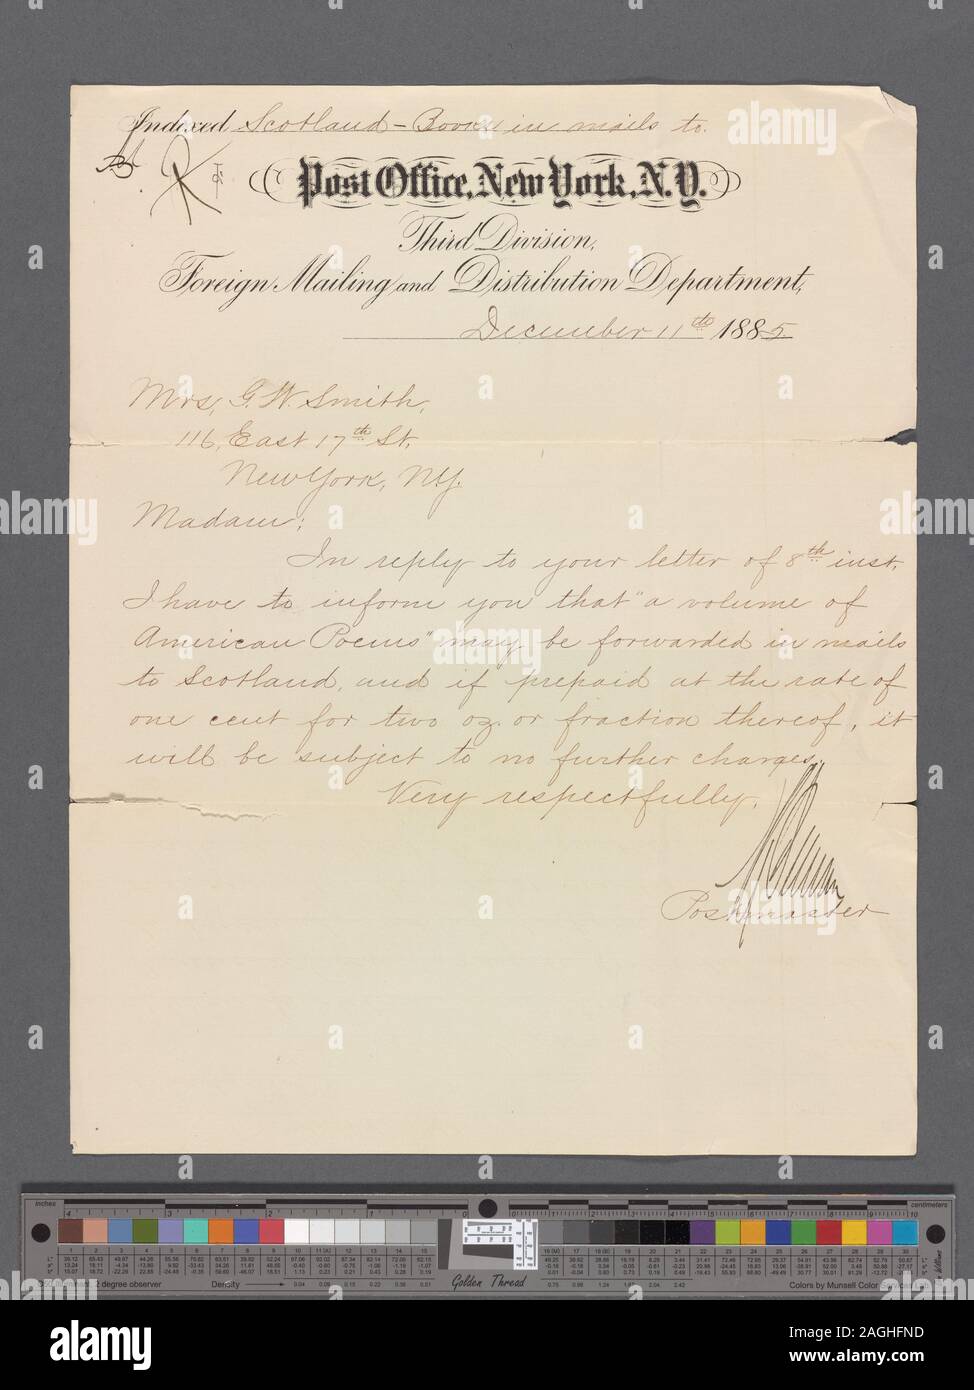 Indexed Scotland - Books in mails to.
Post Office, New York, N.Y.
Third Division,
Foreign Mailing and Distribution Department,
December 11th 1885
Mrs. G. W. Smith,
116, East 17th St.
New York, N.Y.
Madam;
In reply to your letter of 8th inst,
I have to inform you that "a volume of
American Poems" may be forwarded in mails
to Scotland, and if prepaid at the rate of
one cent for two oz. or fraction thereof, it
will be subject to no further charges.
Very respectfully,
Postmaster
inches
centimeters
2 degree observer
Density
Golden Thread
Colors by Munsell Color
alamy
Image ID: 2AGHFND
www.alamy.com